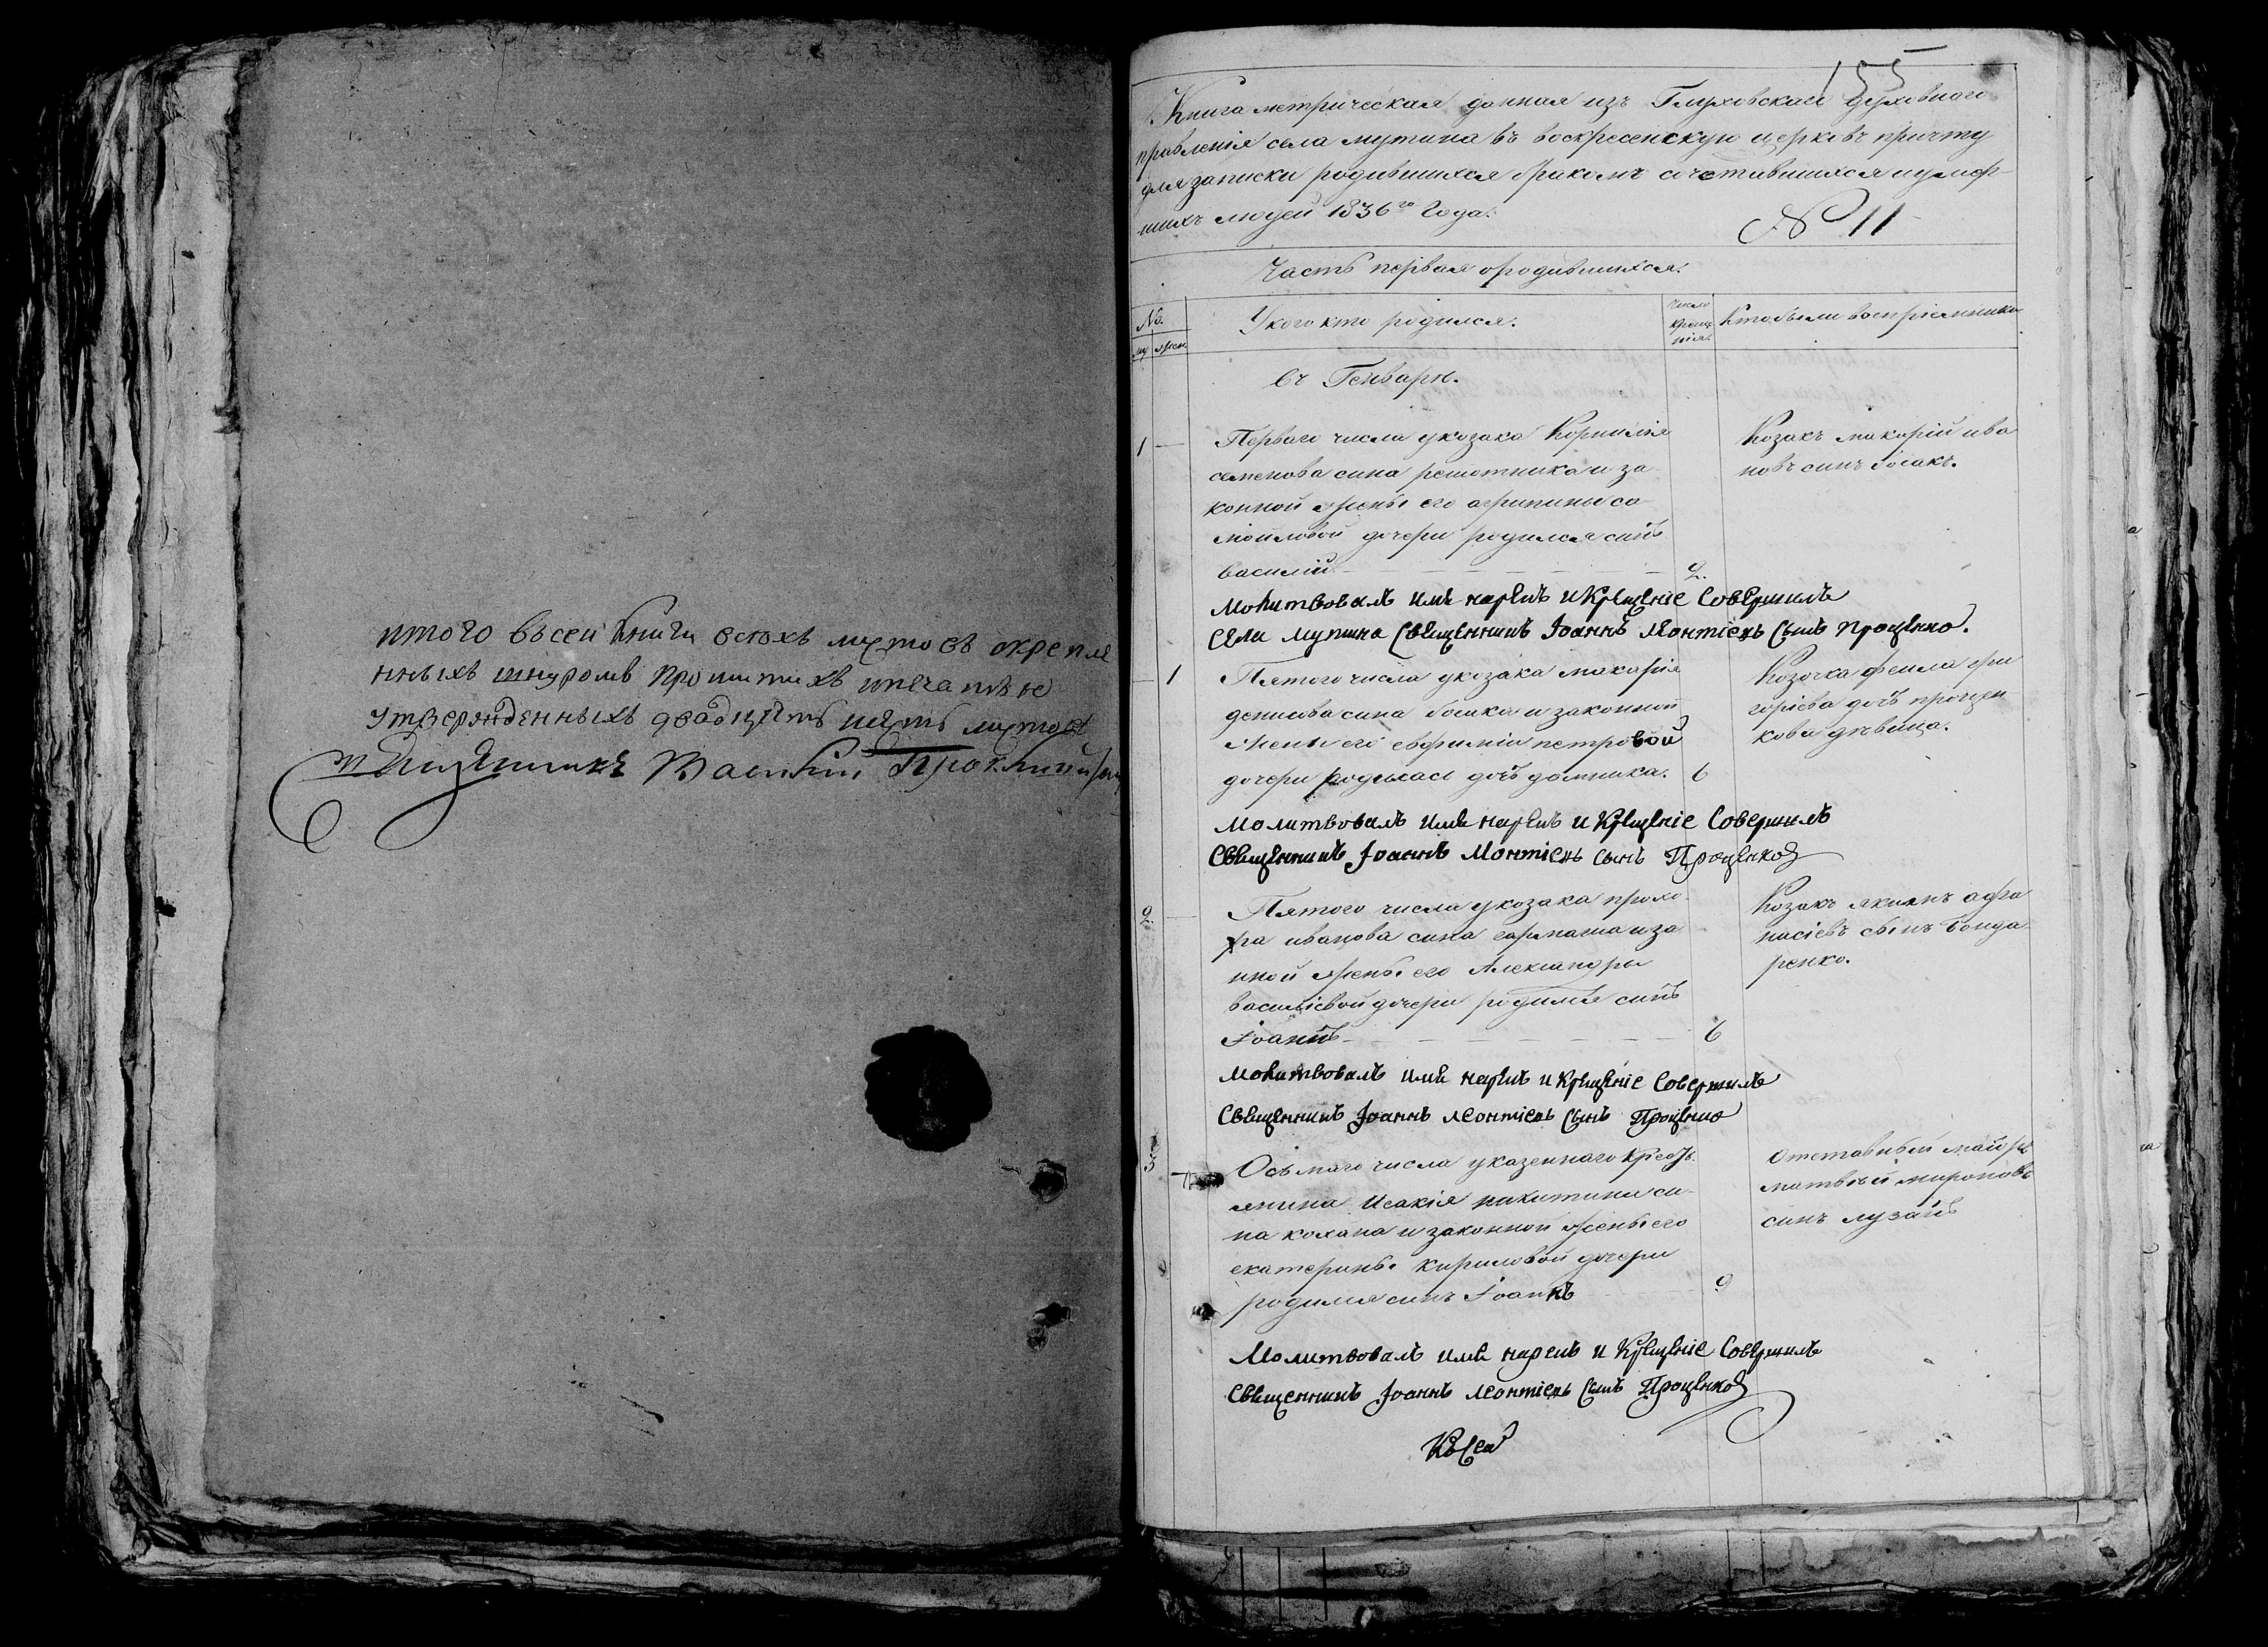 итого въ сей книги всѣхъ листовъ скрепле
нныхъ шнуромъ прошитихъ ипечатью
утвержденныхъ двадцять пять листовъ
Василий
155
Книга метрическая данная изъ Глуховскаго духовнаго
правленія села мутина въ воскресенскую церковь причту
для записки родившихся бракомъ сочетавшихся иумер
шихъ людей 1836го Года.
№ 11
Часть первая ородившихся.
No.
му жен
Укого кто родился.
Число креще нія.
Кто были воспріемники
въ Генваре.
1
Перваго числа укозака Корнилія
семенова сина решотника и за
конной жены его агрипини са
мойловой дочери родился синъ
василій
2.
Козакъ макарій ива
новъ синъ босакъ.
Молитвовалъ имя нареклъ и Крещеніе Совершилъ
Села Мутина Священникъ Іоаннъ Леонтіевъ Сынъ Проценко.
1
Пятого числа укозака макарія
денисова сина босака и законной
жены его евфиміи петровой
дочери родилась дочъ домника.
6
Козачка фекла гри
горіева дочъ процен
кова дѣвица.
Молитвовалъ имя нареклъ и Крещеніе Совершилъ
Священникъ Іоаннъ Леонтіевъ сынъ Проценко
2
Пятого числа укозака прохо
ра иванова сина гармаша иза
нной жены его Александри
василіевой дочери родился синъ
Іоаннъ
6
Козакъ якимъ афа
насіевъ сынъ бонда
ренко.
Молитвовалъ имя нареклъ и Крещеніе Совершилъ
Священникъ Іоаннъ Леонтіевъ Сынъ Проценко
3
Осьмаго числа указеннаго кресть
янина Исакія никитина си
на кохана и законной жены его
екатерины кириловой дочери
родился синъ Іоаннъ
9
Отставный маіоръ
матвѣй мироновъ
синъ лузанъ
Молитвовалъ имя нареклъ и Крещеніе Совершилъ
Священникъ Іоаннъ Леонтіевъ Сынъ Проценко
Къ сей